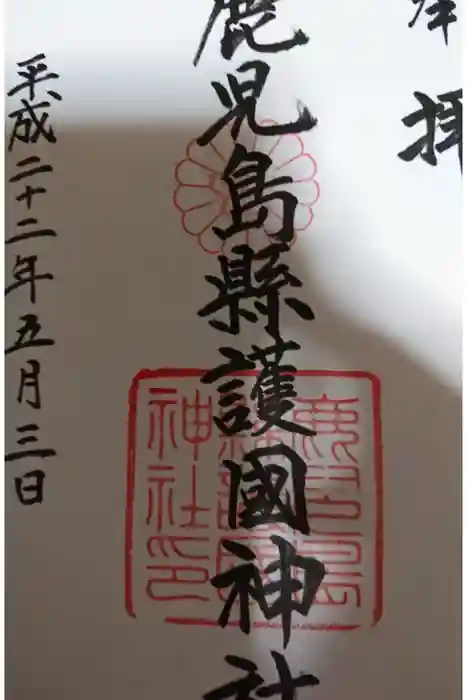 奉拝
鹿児島縣護國神社
平成二十二年五月三日
鹿児島
縣護國
神社印